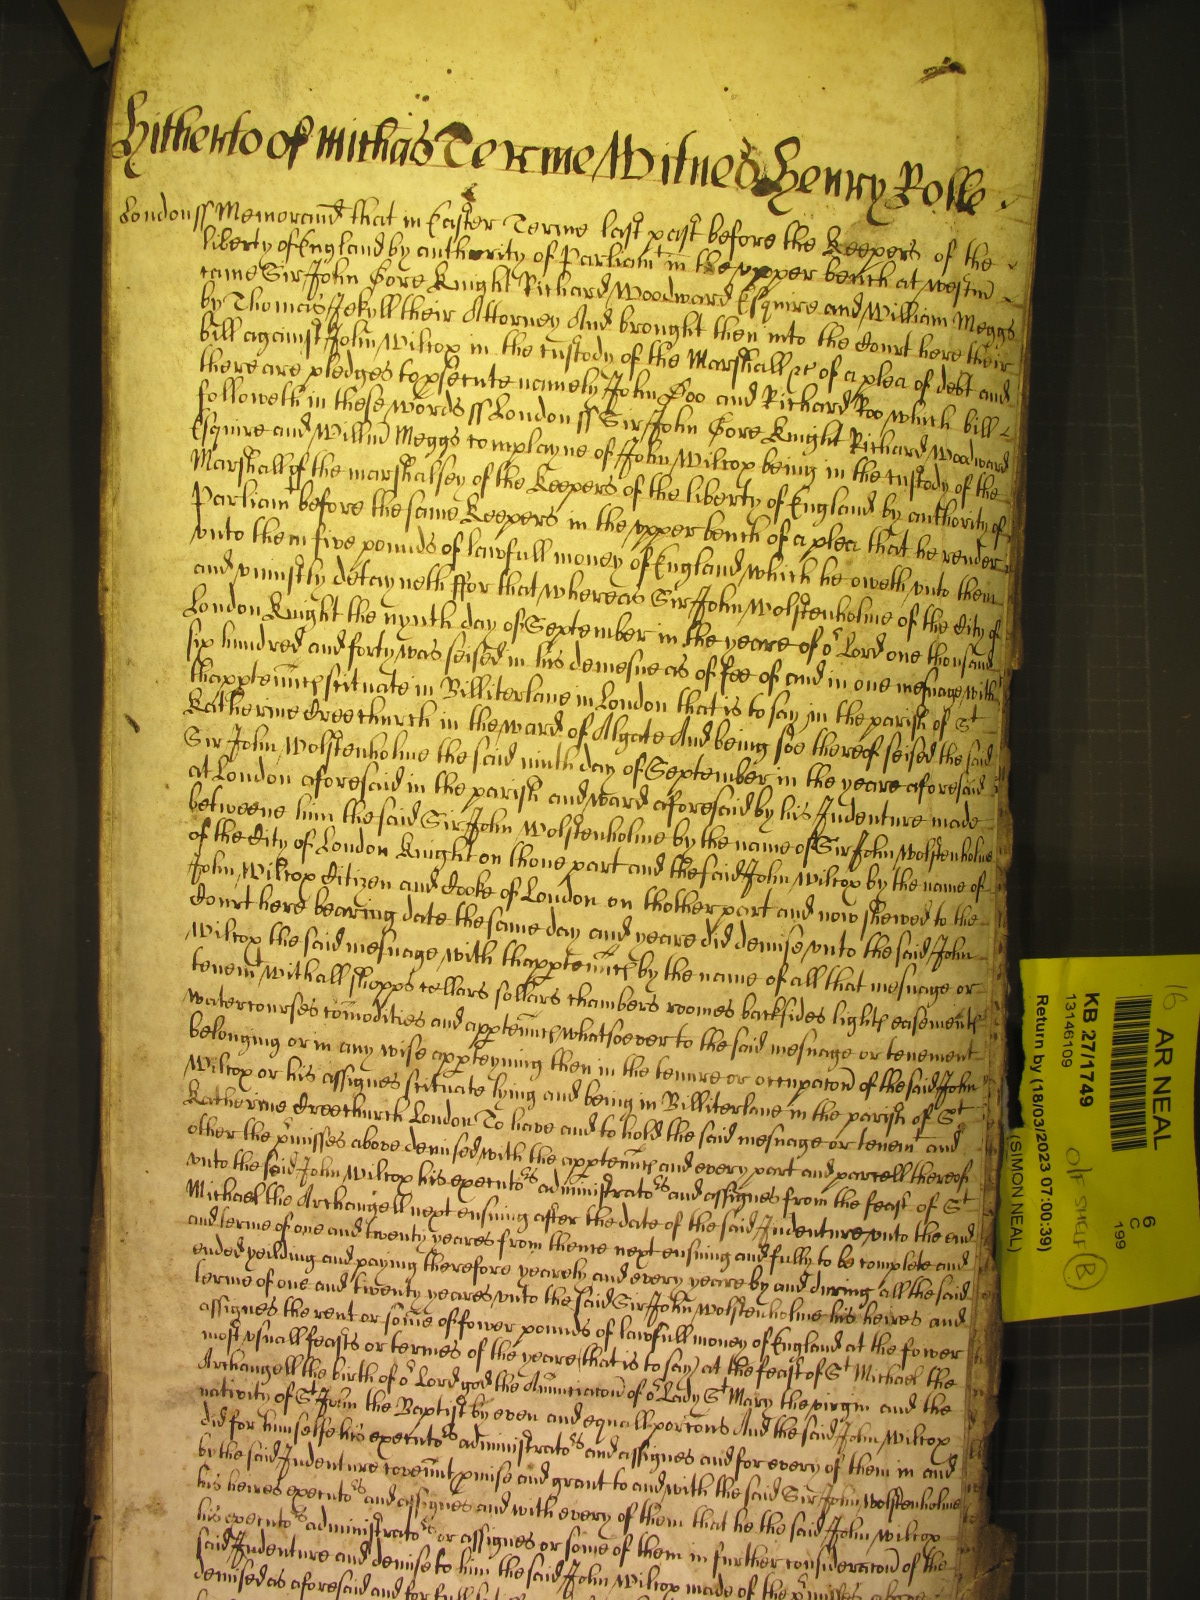 Hitherto of Michas Terme Witnes Henry Rolle
London ss Memorand that in Easter Terme last past before the Keepers of the
liberty of England by authority of Parliamt in the upper bench at Westm
came Sir John Gore Knight Richard Woodward Esquire and William Meggs
by Thomas Jekyll their Attorney And brought then into the Court here their
bill against John Wilcox in the custody of the Marshall &c of a plea of debt and
there are pledges to psecute namely John Doo and Richard Roo which bill
followeth in these words ss London ss Sir John Gore Knight Richard Woodward
Esquire and Willm Meggs complayne of John Wilcox being in the custody of the
Marshall of the marshalsey of the Keepers of the liberty of England by authority of
Parliamt before the same Keepers in the upper bench of a plea that he render
unto them five pounds of lawfull money of England which he oweth unto them
and uniustly detayneth ffor that whereas Sir John Wolstenholme of the City of
London Knight the nynth day of September in the yeare of or Lord one thousand
six hundred and forty was seised in his demesne as of fee of and in one mesuage with
thapptennces scituate in Billiterlane in London that is to say in the parish of St
Katherine Creechurch in the ward of Algate And being soe thereof seised the said
Sir John Wolstenholme the said ninth day of September in the yeare aforesaid
at London aforesaid in the parish and ward aforesaid by his Indenture made
betweene him the said Sir John Wolstenholme by the name of Sir John Wolstenholme
of the City of London Knight on thone part and the said John Wilcox by the name of
John Wilcox Citizen and Cooke of London on thother part and now shewed to the
Court here bearing date the same day and yeare did demise unto the said John
Wilcox the said mesuage with thapptennces by the name of all that mesuage or
tenemt with all shopps cellars sollars chambers roomes backsides lightes easementes
watercourses comodities and apptennces whatsoever to the said mesuage or tenement
belonging or in any wise appteyning then in the tenure or occupacon of the said John
Wilcox or his assignes scituate lying and being in Billiterlane in the parish of St
Katherine Creechurch London To have and to hold the said mesuage or tenemt and
other the pmisses above demised with the apptennces and every part and parcell thereof
unto the said John Wilcox his executors administrators and assignes from the feast of St
Michael the Archangell next ensuing after the date of the said Indenture unto the end
and terme of one and twenty yeares from thence next ensuing and fully to be complete and
ended yeilding and paying therefore yearely and every yeare by and during all the said
terme of one and twenty yeares unto the said Sir John Wolstenholme his heires and
assignes the rent or some of fower pounds of lawfull money of England at the fower
most usuall feasts or termes of the yeare (that is to say) at the feast of St Michael the
Archangell the birth of or Lord god the Annunciacon of or Lady St Mary the virgin and the
nativity of St John the Baptist by even and equall porcons And the said John Wilcox
did for himselfe his executors administrators and assignes and for every of them in and
by the said Indenture covennt pmise and grant to and with the said Sir John Wolstenholme
his heires executors and assignes and with every of them that he the said John Wilcox
his executors administrators or assignes or some of them in further consideracon of the
said Indenture and demise to him the said John Wilcox made of the pmisses above
demised as aforesaid and for full
16
AR NEAL
KB 27/1749
13146109
Return by (18/03/2023 07:00:39)
(SIMON NEAL)
6
C
199
O/F SHELF
B